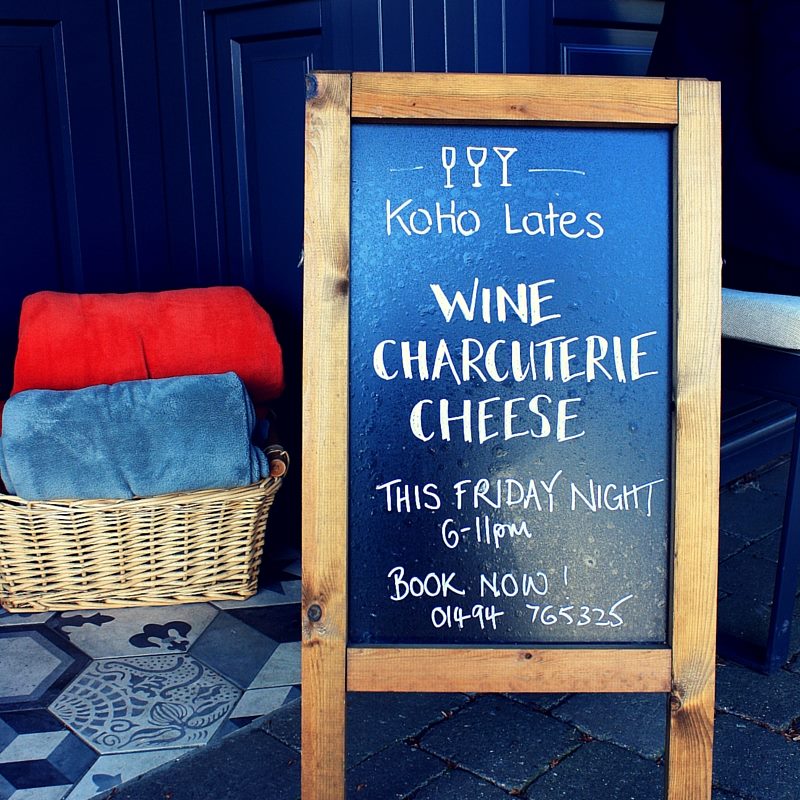 KoHo Lates
WINE
CHARCUTERIE
CHEESE
THIS FRIDAY NIGHT
6-11pm
BOOK NOW!
01494 765325